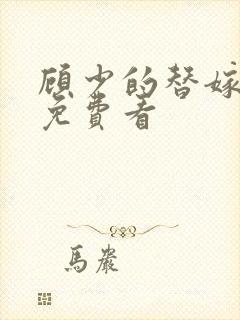 顾少的替嫁
免費看
馬嚴